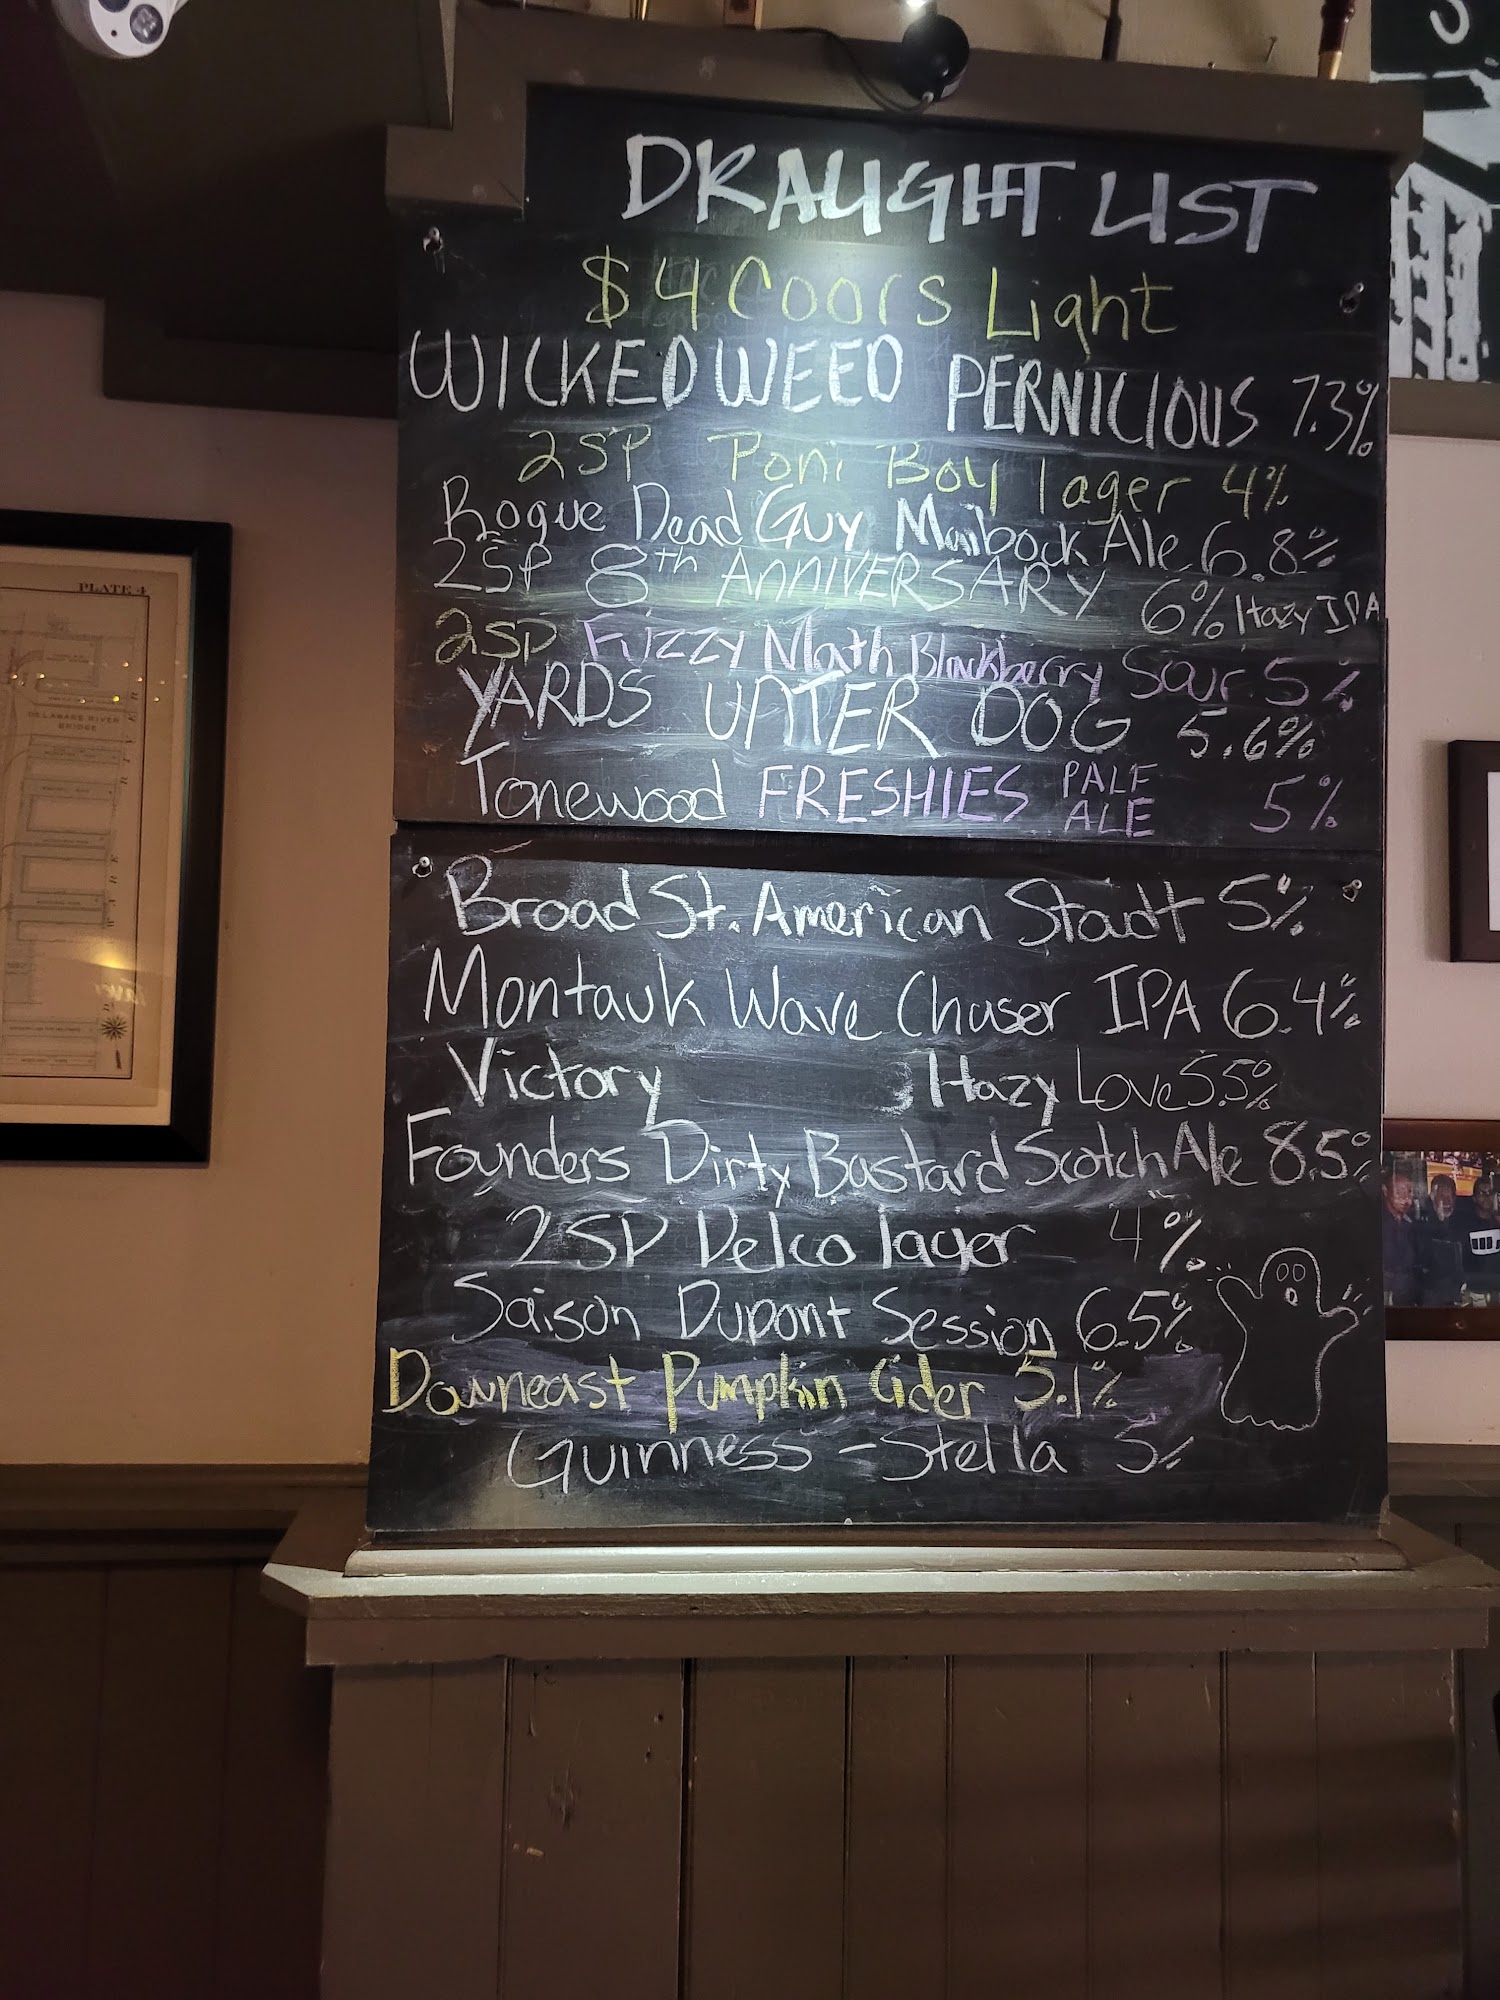 DRAUGHT LIST
$4 Coors Light
WICKED WEED PERNICIOUS 7.3%
2SP Poni Boy lager 4%
Rogue Dead Guy Maibock Ale 6.8%
2SP 8th ANNIVERSARY 6% Hazy IPA
2SP Fuzzy Math Blackberry Sour 5%
YARDS UNTER DOG 5.6%
Tonewood FRESHIES PALE ALE 5%
Broad St. American Stoudt 5%
Montauk Wave Chaser IPA 6.4%
Victory Hazy Love 5.5%
Founders Dirty Bastard Scotch Ale 8.5%
2SP Delco lager 4%
Saison Dupont Session 6.5%
Downeast Pumpkin Cider 5.1%
Guinness - Stella 5%
PLATE 4
DELAWARE RIVER
BRIDGE